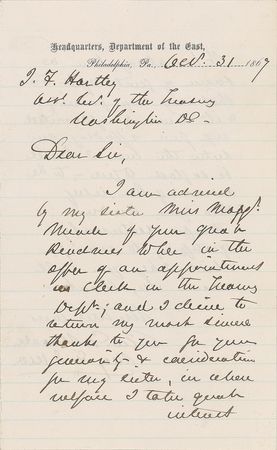 Headquarters, Department of the East,
Philadelphia, Pa., Oct. 31 1867
J. F. Hartley
Asst. Sec. of the Treasy
Washington DC—
Dear Sir,
I am advised
by my sister Miss Margt.
Meade of your great
kindness to her in the
offer of an appointment
as clerk in the Treasy
Dept; and I desire to
return my most sincere
thanks to you for your
generosity & consideration
for my sister, in whose
welfare I take great
interest